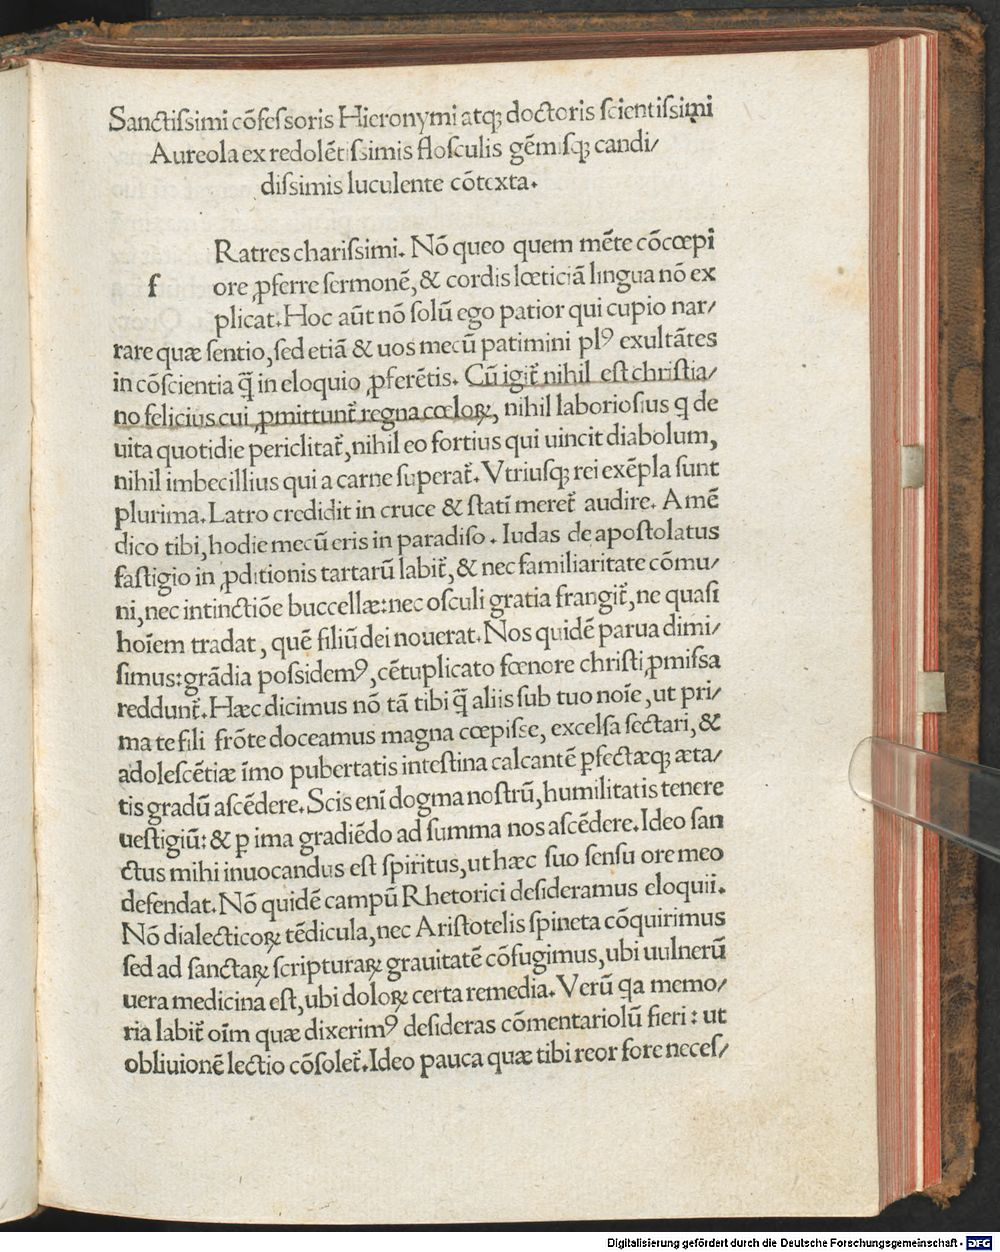 Sanctiſsimi cõfeſsoris Hieronymi atq; doctoris ſcientiſsimi
Aureola ex redolẽtiſsimis floſculis gẽmiſq; candi/
diſsimis luculente cõtexta.
Ratres chariſsimi. Nõ queo quem mẽte cõcœpi
f ore ꝓferre ſermonẽ, & cordis lœticiã lingua nõ ex
plicat. Hoc aũt nõ ſolũ ego patior qui cupio nar/
rare quæ ſentio, ſed etiã & uos mecũ patimini plꝰ exultãtes
in cõſcientia q̃ in eloquio ꝓferẽtis. Cũ igit̃ nihil eſt chriſtia/
no felicius cui ꝓmittunt̃ regna cœloꝝ, nihil laborioſius q de
uita quotidie periclitat̃, nihil eo fortius qui uincit diabolum,
nihil imbecillius qui a carne ſuperat̃. Vtriuſq; rei exẽpla ſunt
plurima. Latro credidit in cruce & ſtatĩ meret̃ audire. Amẽ
dico tibi, hodie mecũ eris in paradiſo. Iudas de apoſtolatus
faſtigio in ꝓditionis tartarũ labit̃, & nec familiaritate cõmu/
ni, nec intinctiõe buccellæ: nec oſculi gratia frangit̃, ne quaſi
hoĩem tradat, quẽ filiũ dei nouerat. Nos quidẽ parua dimi/
ſimus: grãdia poſsidemꝰ, cẽtuplicato fœnore chriſti ꝓmiſsa
reddunt̃. Hæc dicimus nõ tã tibi q̃ aliis ſub tuo noĩe, ut pri/
ma te fili frõte doceamus magna cœpiſse, excelſa ſectari, &
adoleſcẽtiæ ĩmo pubertatis inteſtina calcantẽ ꝑfectæq; æta/
tis gradũ aſcẽdere. Scis enĩ dogma noſtrũ, humilitatis tenere
ueſtigiũ: & p ima gradiẽdo ad ſumma nos aſcẽdere. Ideo ſan
ctus mihi inuocandus eſt ſpiritus, ut hæc ſuo ſenſu ore meo
defendat. Nõ quidẽ campũ Rhetorici deſideramus eloquii.
Nõ dialecticoꝝ tẽdicula, nec Ariſtotelis ſpineta cõquirimus
ſed ad ſanctaꝝ ſcripturaꝝ grauitatẽ cõfugimus, ubi uulnerũ
uera medicina eſt, ubi doloꝝ certa remedia. Verũ qa memo/
ria labit̃ oĩm quæ dixerimꝰ deſideras cõmentariolũ fieri: ut
obliuionẽ lectio cõſolet̃. Ideo pauca quæ tibi reor fore neceſ/
Digitalisierung gefördert durch die Deutsche Forschungsgemeinschaft - DFG